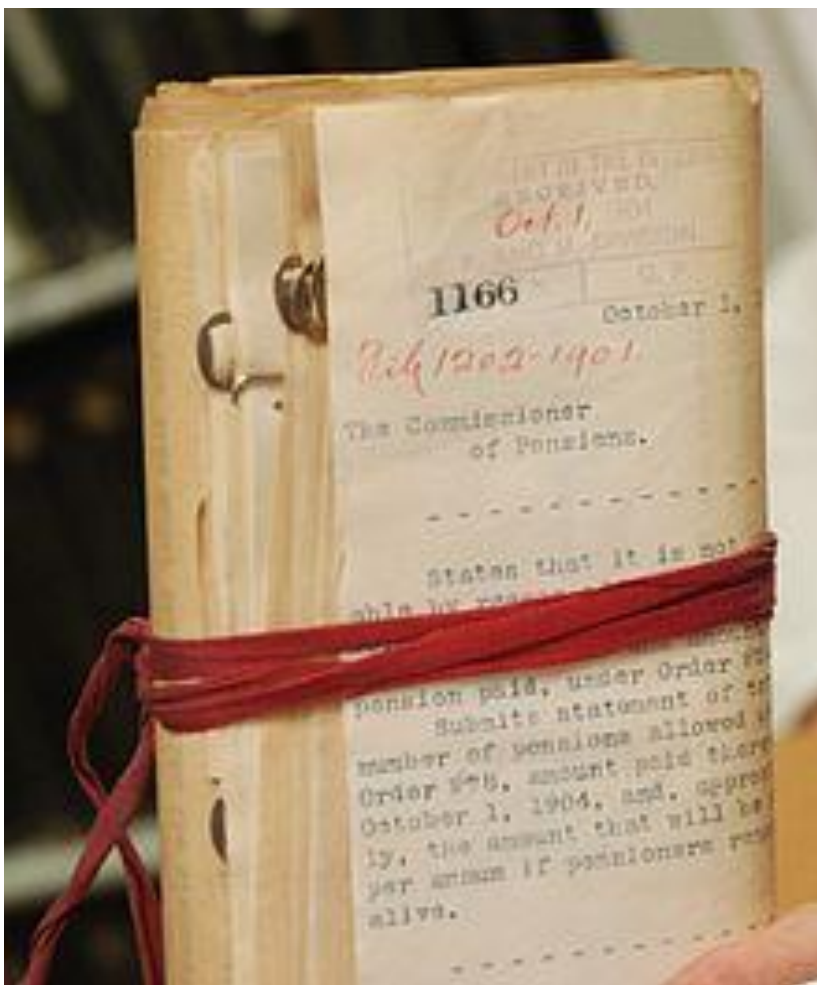 RECEIVED
Oct. 1, 1904
DIVISION
1166
October 1,
File 1202-1901.
The Commissioner
of Pensions.
States that it is not
able by reason
pension paid, under Order
Submits statement of
number of pensions allowed
Order #78, amount paid
October 1, 1904, and,
ly, the amount that will be
per annum if pensioners
alive.